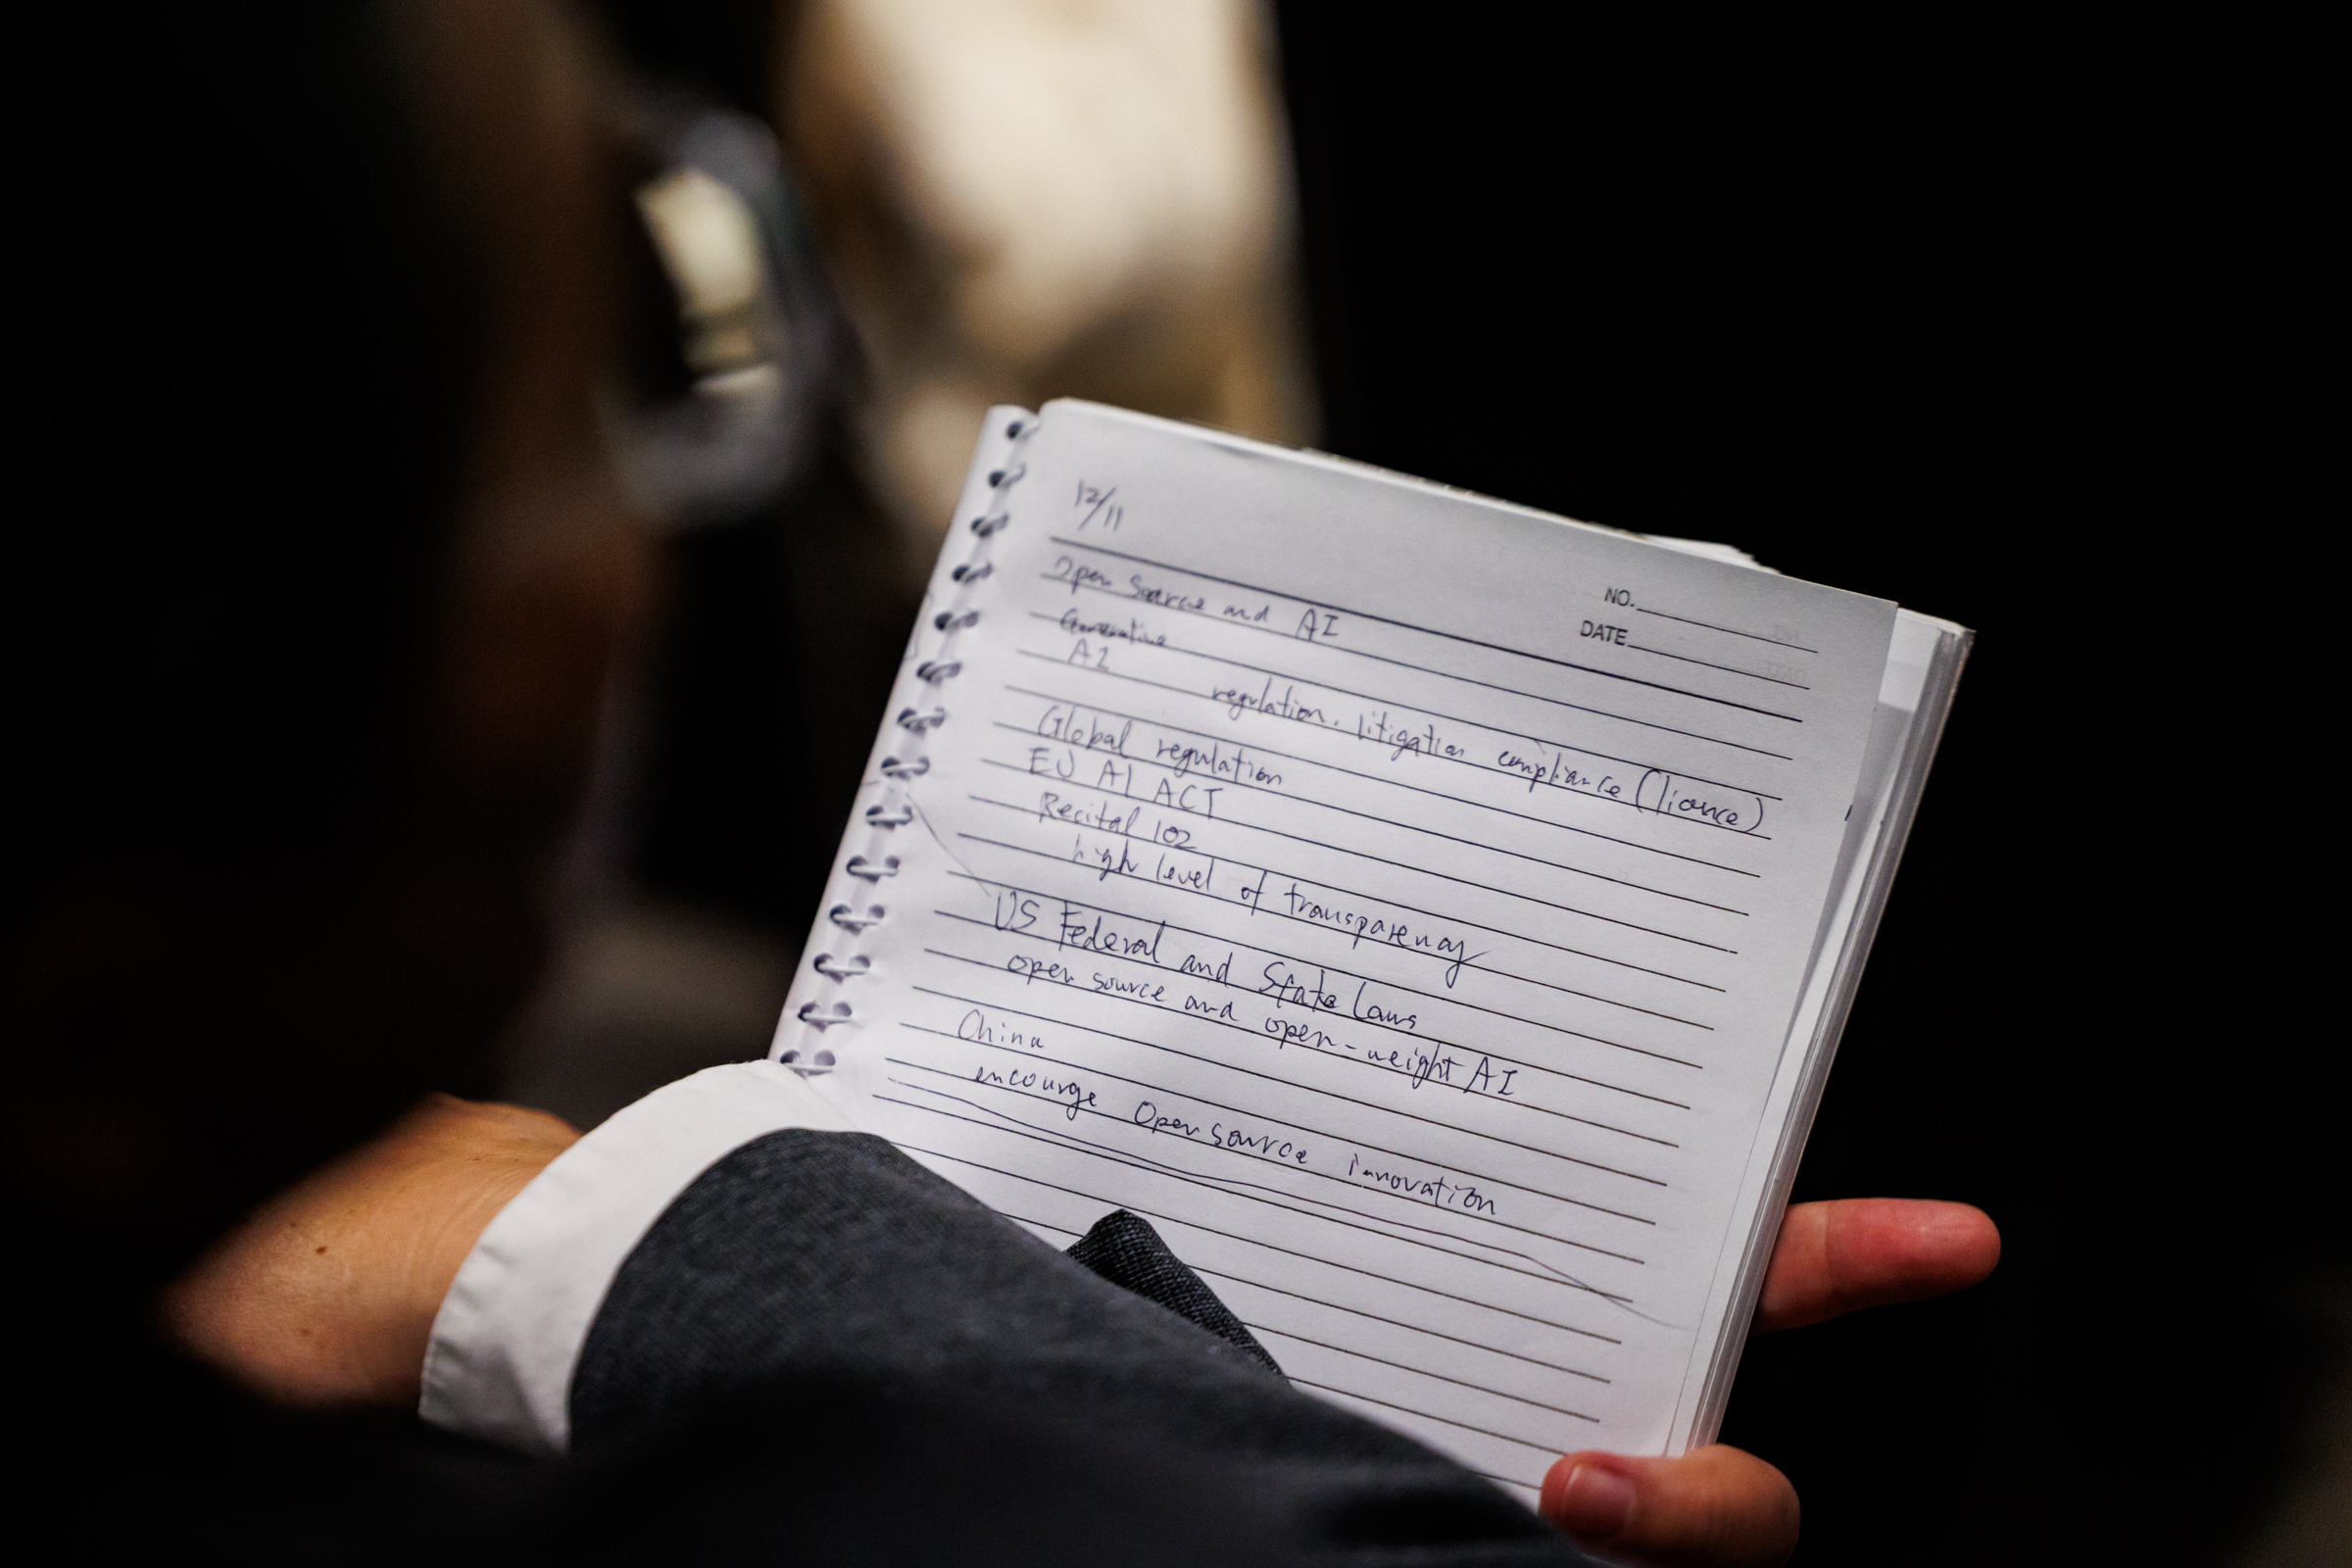 12/11
NO.
DATE
Open Source and AI
Generative
AI
regulation. litigation compliance (licence)
Global regulation
EU AI ACT
Recital 102
high level of transparency
US Federal and State Laws
open source and open-weight AI
China
encourge Open source innovation